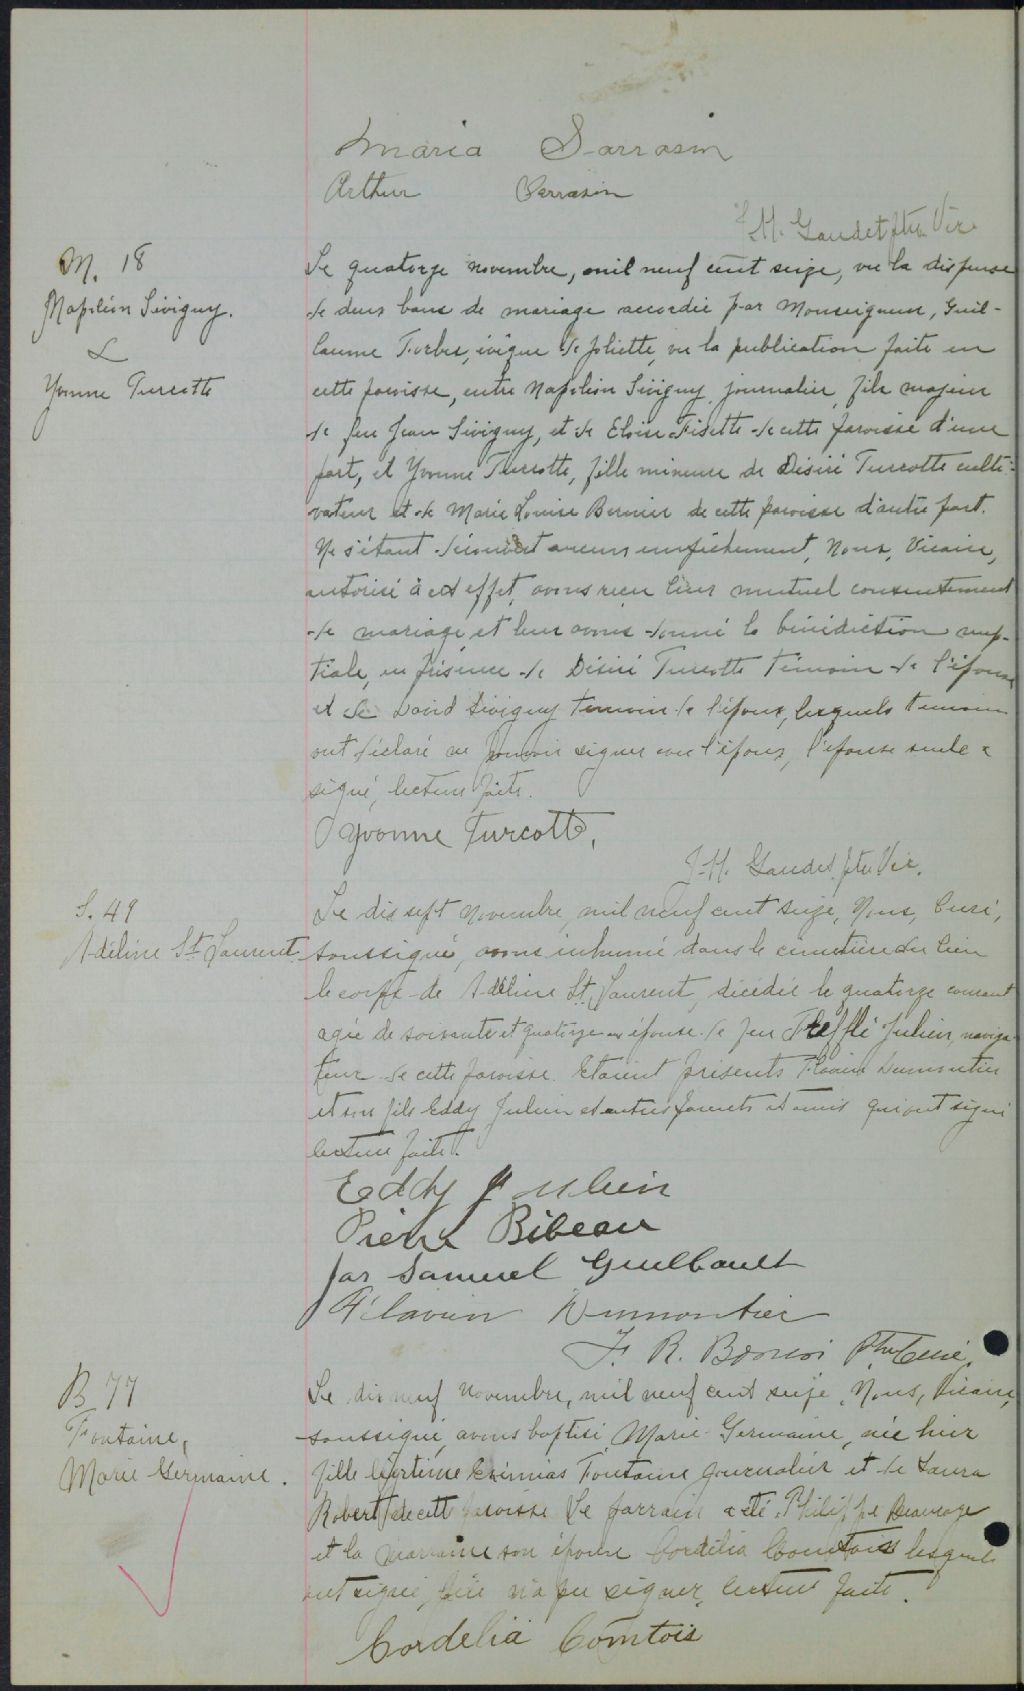 Maria Sarrasin
Arthur Sarrasin
J. H. Gaudet ptre Vic.
M. 18
Napoléon Sévigny.
&
Yvonne Turcotte
Le quatorze novembre, mil neuf cent seize, vu la dispense
de deux bans de mariage accordée par Monseigneur, Guil-
laume Forbes, évêque de Joliette, vu la publication faite en
cette paroisse, entre Napoléon Sévigny, journalier, fils majeur
de feu Jean Sévigny, et de Eloise Fisette de cette paroisse d'une
part, et Yvonne Turcotte, fille mineure de Désiré Turcotte culti-
vateur et de Marie Louise Bernier de cette paroisse d'autre part.
Ne s'étant découvert aucun empêchement, Nous, Vicaire,
autorisé à cet effet, avons reçu leur mutuel consentement
de mariage et leur avons donné la bénédiction nup-
tiale, en présence de Désiré Turcotte témoin de l'épouse
et de David Sévigny témoin de l'époux, lesquels témoins
ont déclaré ne pouvoir signer avec l'époux, l'épouse seule a
signé, lecture faite.
Yvonne Turcotte,
J. H. Gaudet ptre Vic.
S. 49
Adéline St Laurent
Le dix sept novembre, mil neuf cent seize, Nous, Curé,
soussigné, avons inhumé dans le cimetière du lieu
le corps de Adéline St. Laurent, décédée le quatorze courant
agée de soixante et quatorze ans épouse de feu Trefflé Julien, naviga-
teur de cette paroisse. Etaient présents Flavien Dumontier
et son fils Eddy Julien et autres parents et amis qui ont signé
lecture faite.
Eddy Julien
Pierre Bibeau
Jos Samuel Guilbault
Flavien Dumontier
F. R. Bonin Ptre Curé.
B 77
Fontaine,
Marie Germaine.
Le dix neuf novembre, mil neuf cent seize, Nous, Vicaire,
soussigné, avons baptisé, Marie Germaine, née hier
fille légitime Ezimias Fontaine journalier et de Laura
Robert de cette paroisse Le parrain a été Philippe Beaurage
et la marraine son épouse Cordélia Comtois lesquels
ont signé, père n'a pu signer, lecture faite.
Cordelia Comtois